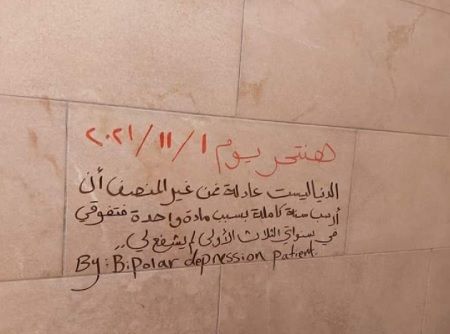 هنتحر يوم ٢٠٢١/١١/١
الدنيا ليست عادلة فمن غير المنصف أن
أرسب سنة كاملة بسبب مادة واحدة فتفوقي
في سنواتي الثلاث الأولى لم يشفع لي..
By: Bipolar depression patient.